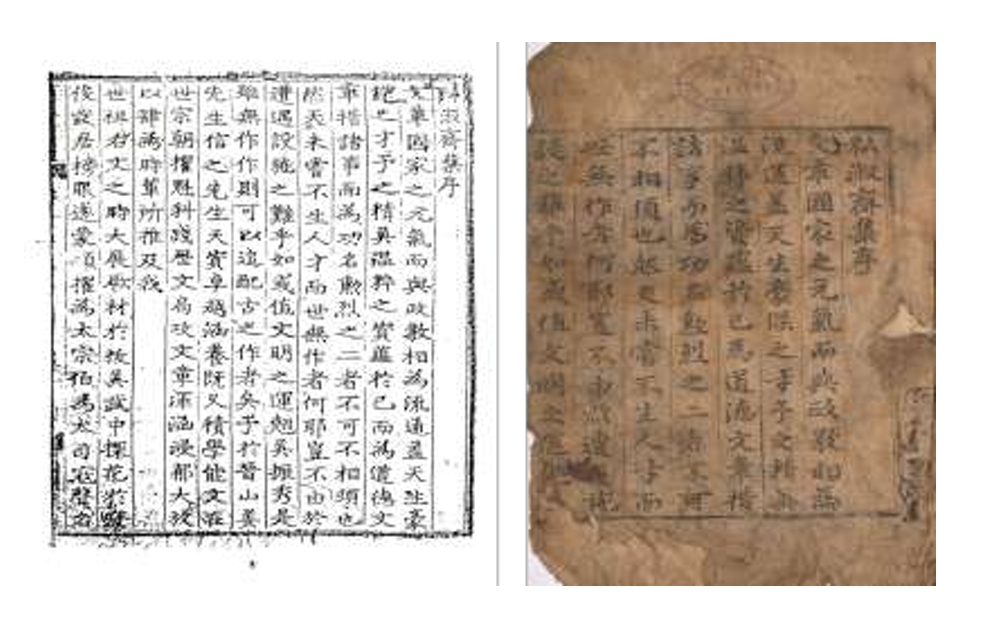 私淑齋集序
文章國家之元氣而與政教相爲流通盖天生豪
之才予之精英温粹之資蘊於已而爲道德文
章措諸事而爲功名勲烈之二者不可不相須也
然天未嘗不生人才而世無作者何耶豈不由於
遭遇設施之難乎如或值文明之運勉英振秀是
雖無作作則可以追配古之作者矣予於晋山姜
先生信之先生天資卓越涵養既又積學能文在
世宗朝擢魁科踐歷文局攻文章渾涵浸郁大放
以肆爲時輩所推及我
世祖右文之時大展材於拔英試中探花於
俊居榜眼遂蒙擢爲太宗伯爲大司寇聲名
私淑齋集序
文章國家之元氣而與政敎相爲
流通盖天生豪傑之才予之精英
之資蘊於已爲道德文章措
諸事而爲功名勲烈之二者不可
不相須也然天未嘗不生人才而
世無作者何耶豈不由遭
施之難乎如或值文明之運